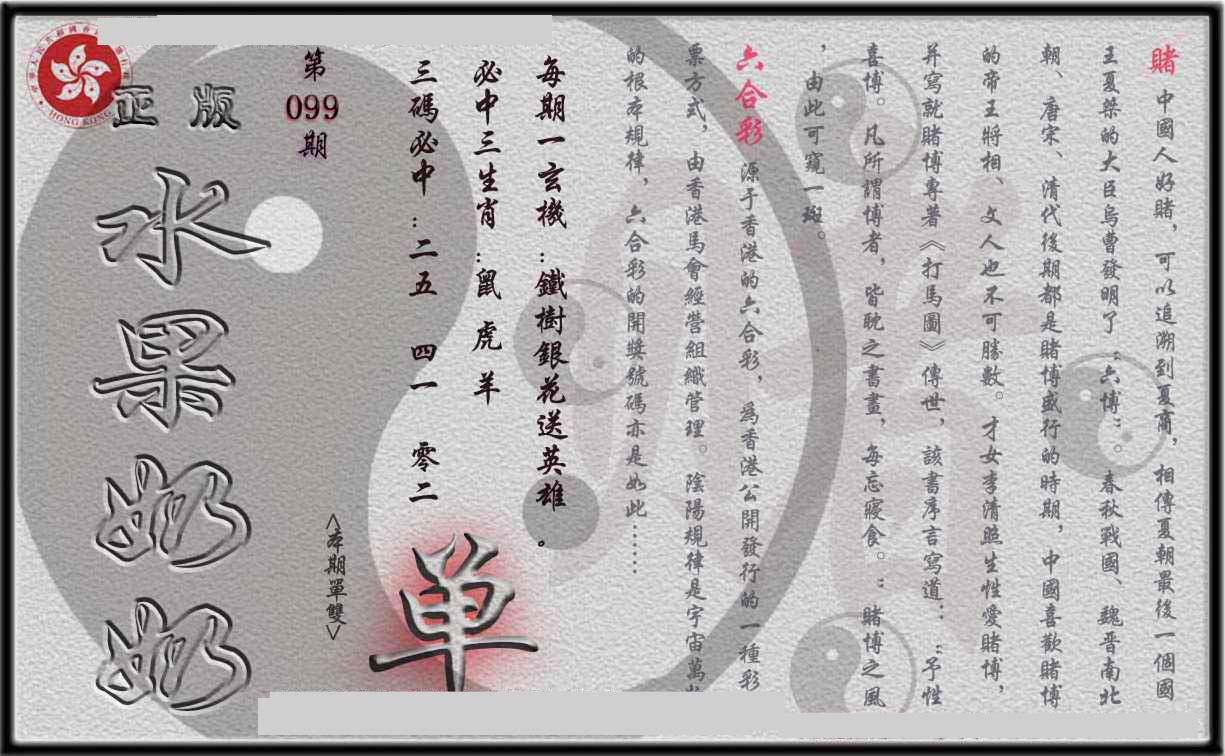 賭 中國人好賭，可以追溯到夏商，相傳夏朝最後一個國
王夏桀的大臣烏曹發明了："六博"。春秋戰國、魏晋南北
朝、唐宋、清代後期都是賭博盛行的時期，中國喜歡賭博
的帝王將相、文人也不可勝數。才女李清照生性愛賭博，
并寫就賭博專著《打馬圖》傳世，該書序言寫道："予性
喜博。凡所謂博者，皆耽之書晝，每忘寢食。"賭博之風
，由此可窺一斑。
六合彩 源于香港的六合彩，爲香港公開發行的一種彩
票方式，由香港馬會經營組織管理。陰陽規律是宇宙萬
的根本規律，六合彩的開獎號碼亦是如此……
每期一玄機：鐵樹銀花送英雄。
必中三生肖：鼠 虎 羊
三碼必中：二五 四一 零二
單
<本期單雙>
第
099
期
正版
水果奶奶
HONG KONG